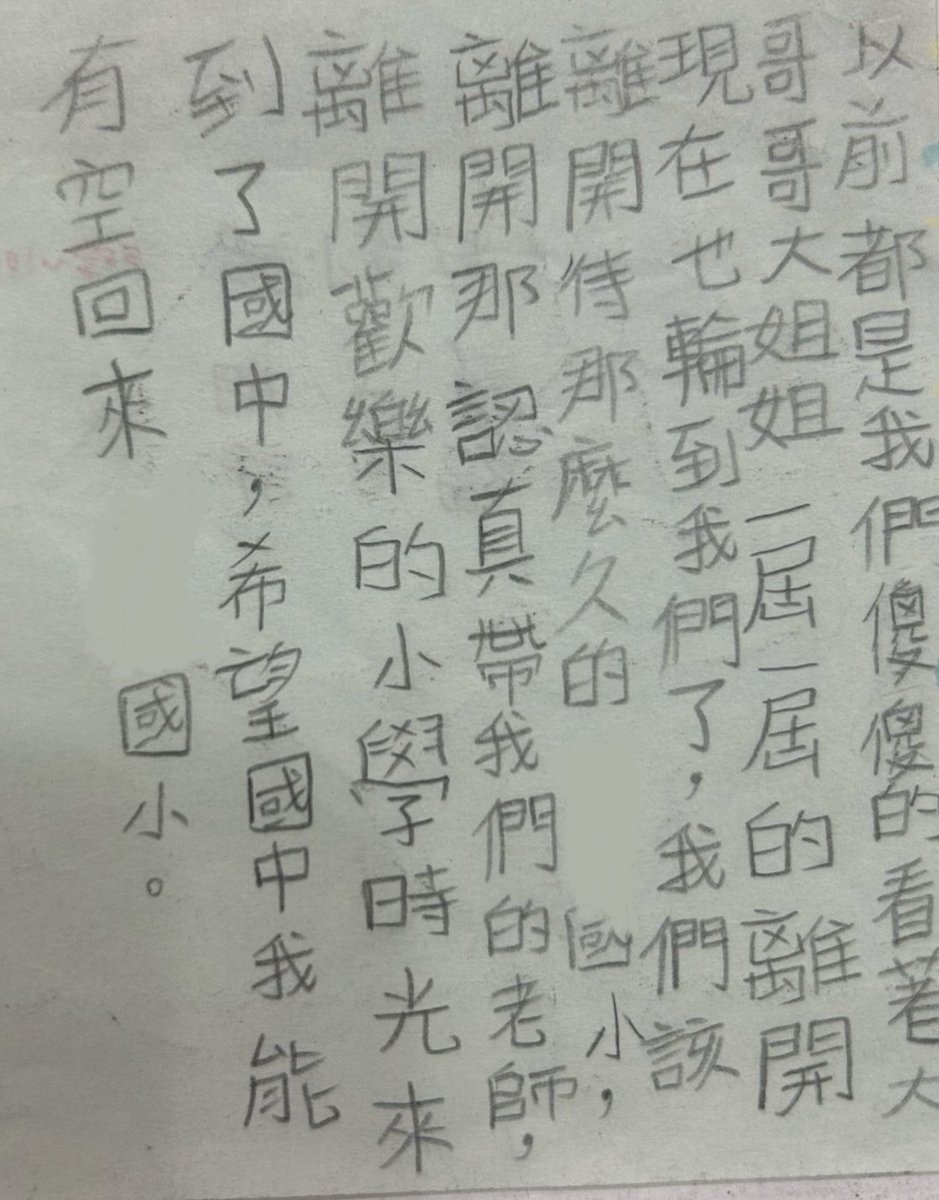 以前都是我們傻傻的看著大
哥哥大姐姐一屆一屆的離開
現在也輪到我們了，我們該
離開待那麼久的國小，
離開那認真帶我們的老師，
離開歡樂的小學時光來
到了國中，希望國中我能
有空回來國小。